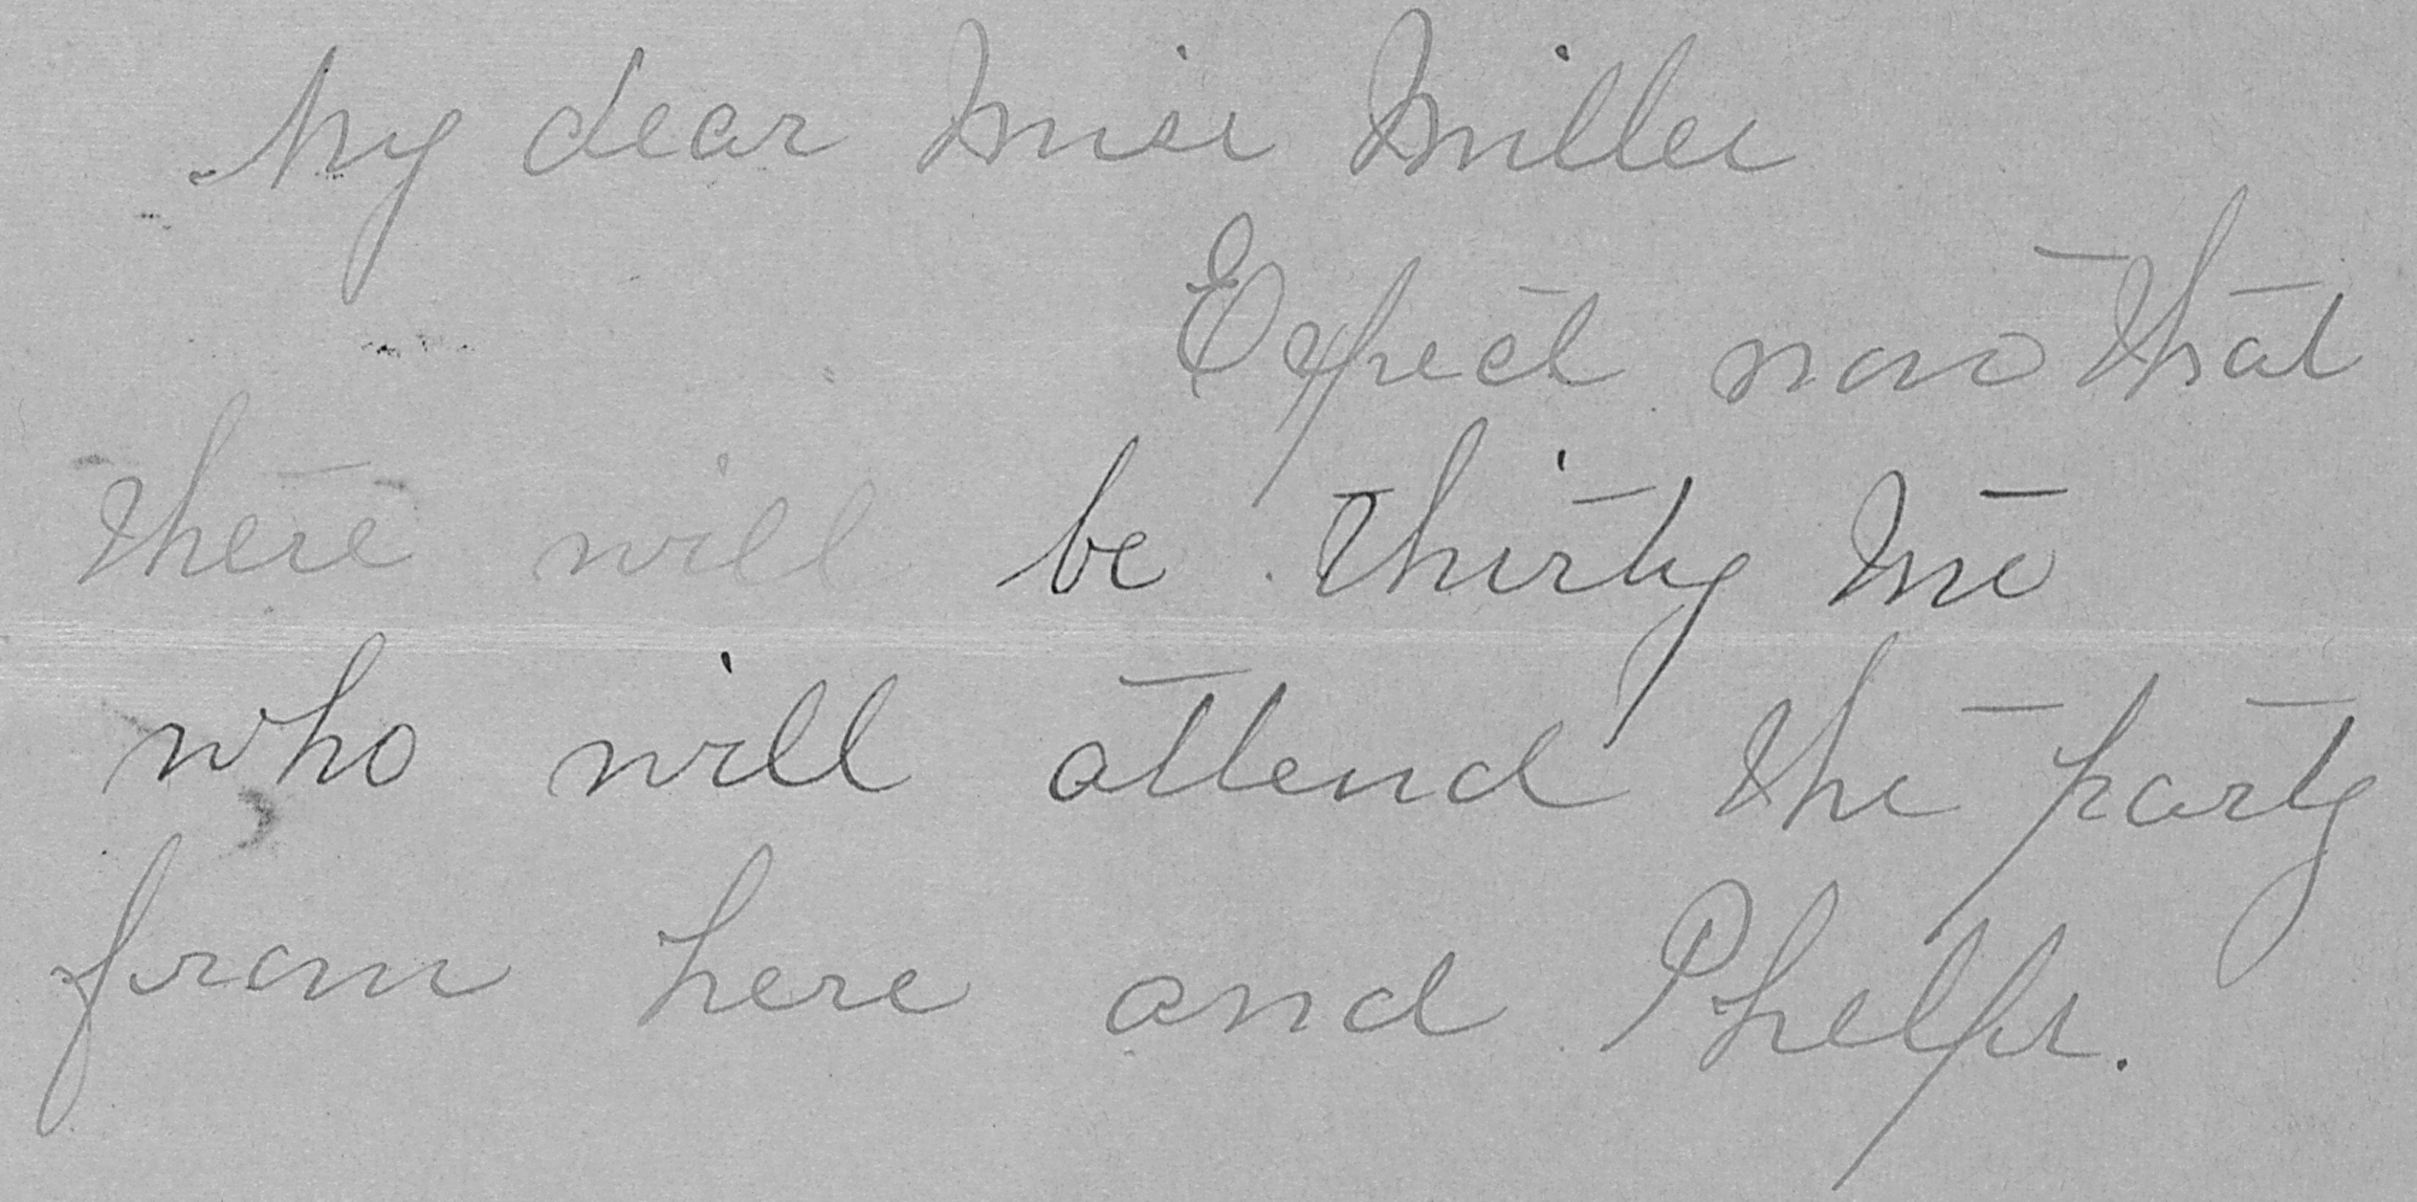 My dear Miss Miller
Expect now that
there will be thirty mē
who will attend the party
from here and Phelps.